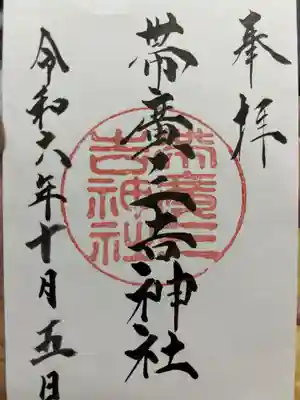 奉拝
帯廣三吉神社
令和六年十月五日
帯廣三吉神社